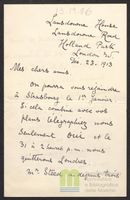 Lansdowne House
Lansdowne Road
Holland Park
London W.
Dec. 23. 1913
Mes chers amis
On pourra vous rejoindre
à Strasbourg le 1er Janvier
Si cela combine avec vos
plans telegraphiez nous
seulement Oui et le
31 à 2 heures p.m. nous
quitterons Londres
Mr. Steed